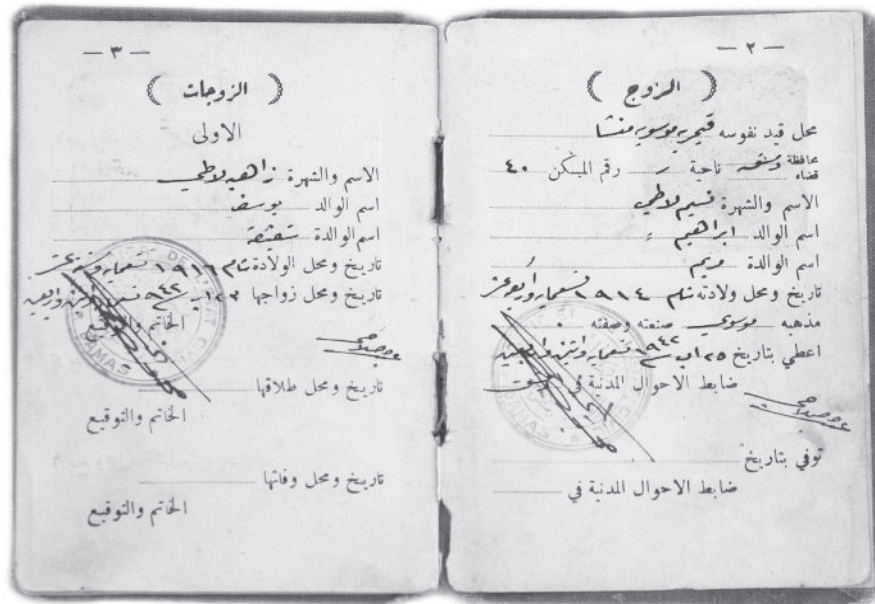 — ٢ —
( الزوج )
محل قيد نفوسه قيمرية موسوية منشا
محافظة
قضاء
دمشق ناحية رقم المسكن ٤٠
الاسم والشهرة نسيم لاطي
اسم الوالد ابراهيم
اسم الوالدة مريم
تاريخ ومحل ولادته شام ١٩١٤ تسعماية واربع عشر
مذهبه موسوي صنعته وصفته
اعطي بتاريخ ٢٥ اب ٩٤٢ تسعماية واثنين واربعين
ضابط الاحوال المدنية في
توفي بتاريخ
ضابط الاحوال المدنية في
— ٣ —
( الزوجات )
الاولى
الاسم والشهرة زاهية لاطي
اسم الوالد يوسف
اسم الوالدة شفيقة
تاريخ ومحل الولادة شام ١٩١٦ تسعماية وستة عشر
تاريخ ومحل زواجها ٢٣ اب ٩٤٢
الخاتم والتوقيع
DAMAS
تاريخ ومحل طلاقها
الخاتم والتوقيع
تاريخ ومحل وفاتها
الخاتم والتوقيع